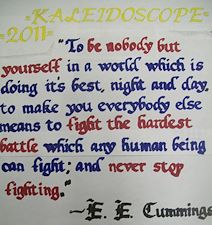 -KALEIDOSCOPE-
-2011-
"To be nobody but
yourself in a world which is
doing it's best, night and day,
to make you everybody else
means to fight the hardest
battle which any human being
can fight; and never stop
fighting."
~E. E. Cummings